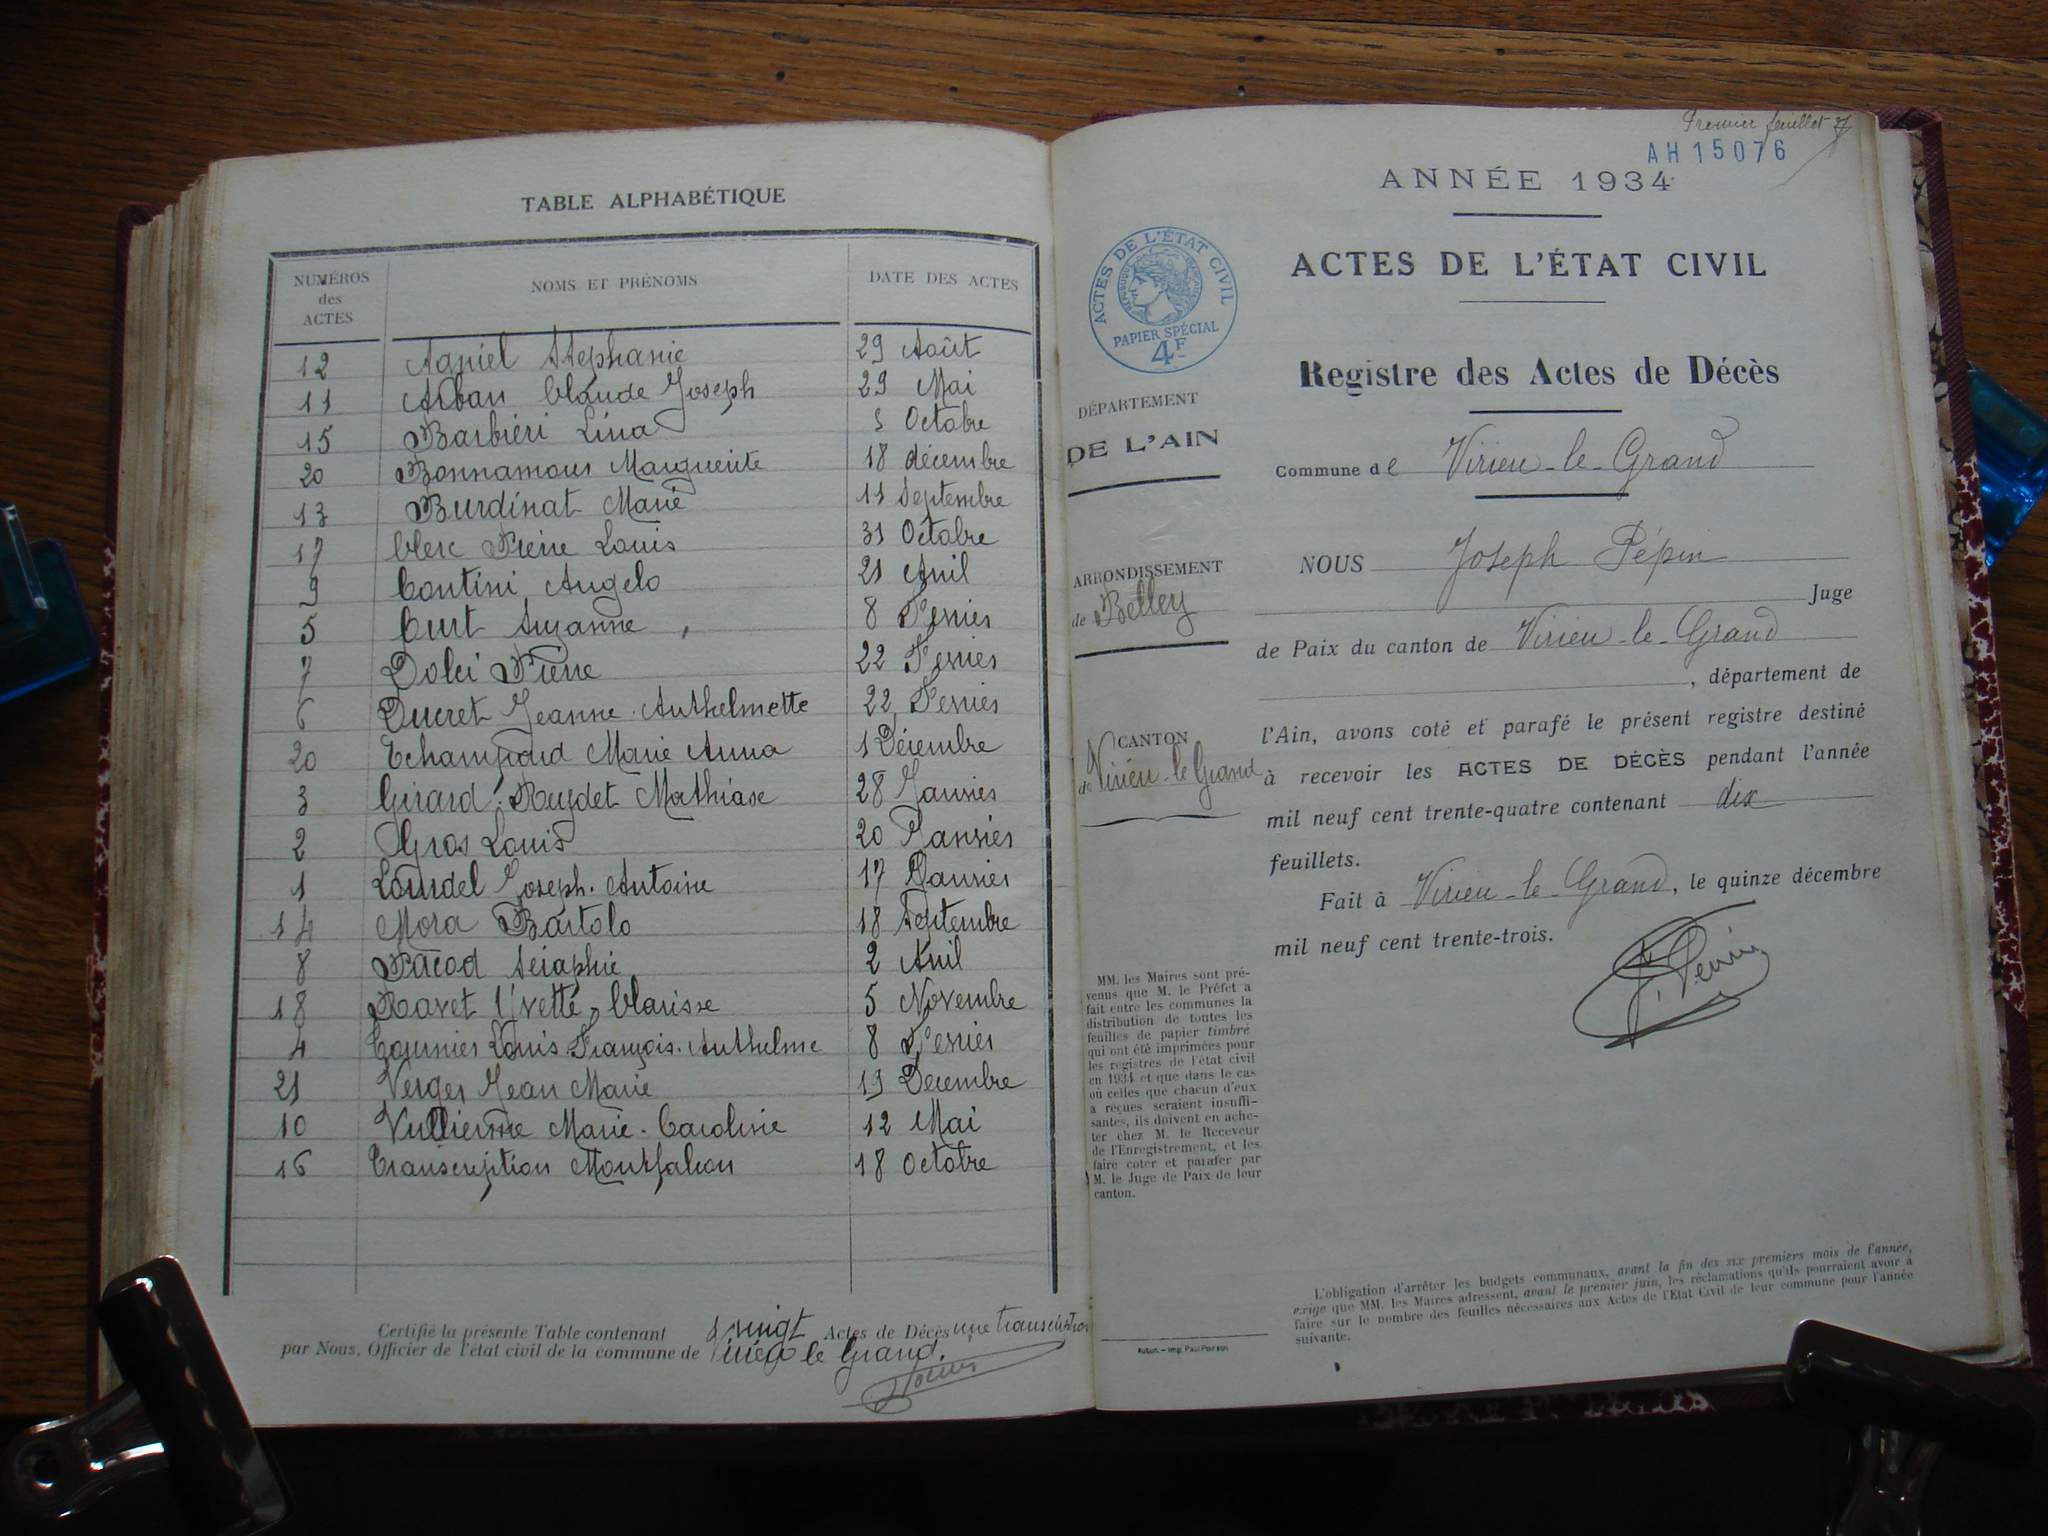 TABLE ALPHABÉTIQUE
NUMÉROS des ACTES NOMS ET PRÉNOMS DATE DES ACTES
12 Agniel Stéphanie 29 Août
11 Alban Claude Joseph 29 Mai
15 Barbiéri Lina 5 Octobre
20 Bonnamour Marguerite 18 décembre
13 Burdinat Marie 11 Septembre
17 Clerc Pierre Louis 31 Octobre
9 Contini Angelo 21 Avril
5 Curt Suzanne 8 Février
7 Dolci Pierre 22 Février
6 Ducret Jeanne. Anthelmette 22 Février
20 Echampioud Marie Anna 1 Décembre
3 Girard. Ruydet Mathiase 28 Janvier
2 Gros Louis 20 Janvier
1 Lourdel Joseph. Antoine 17 Janvier
14 Mora Bartolo 18 Septembre
8 Pacod Séraphie 2 Avril
18 Ravet Yvette, Clarisse 5 Novembre
4 Tournier Louis. François. Anthelme 8 Février
21 Verger Jean Marie 19 Décembre
10 Vullierme Marie. Caroline 12 Mai
16 Transcription Montfalcon 18 octobre
Certifié la présente Table contenant vingt Actes de Décès une transcription
par Nous, Officier de l'état civil de la commune de Virieu le Grand.
Premier feuillet
AH15076
ANNÉE 1934
ACTES DE L'ÉTAT CIVIL
Registre des Actes de Décès
ACTES DE L'ÉTAT CIVIL
RÉPUBLIQUE FRANÇAISE
PAPIER SPÉCIAL
4F
DÉPARTEMENT
DE L'AIN
ARRONDISSEMENT
de Belley
CANTON
de Virieu-le Grand
Commune de Virieu-le-Grand
NOUS Joseph Pépin
Juge
de Paix du canton de Virieu-le-Grand
, département de
l'Ain, avons coté et parafé le présent registre destiné
à recevoir les ACTES DE DÉCÈS pendant l'année
mil neuf cent trente-quatre contenant dix
feuillets.
Fait à Virieu-le-Grand, le quinze décembre
mil neuf cent trente-trois.
J. Pépin
MM. les Maires sont pré-
venus que M. le Préfet a
fait entre les communes la
distribution de toutes les
feuilles de papier timbré
qui ont été imprimées pour
les registres de l'état civil
en 1934 et que dans le cas
où celles que chacun d'eux
a reçues seraient insuffi-
santes, ils doivent en ache-
ter chez M. le Receveur
de l'Enregistrement, et les
faire coter et parafer par
M. le Juge de Paix de leur
canton.
L'obligation d'arrêter les budgets communaux, avant la fin des six premiers mois de l'année,
exige que MM. les Maires adressent, avant le premier juin, les réclamations qu'ils pourraient avoir à
faire sur le nombre des feuilles nécessaires aux Actes de l'Etat Civil de leur commune pour l'année
suivante.